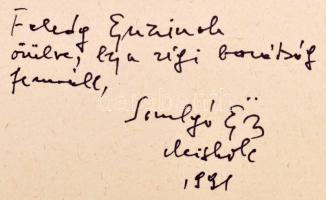 Feledy Gyulának
örülve, hogy a régi barátság
fennáll,
Somlyó Gy
Miskolc
1991